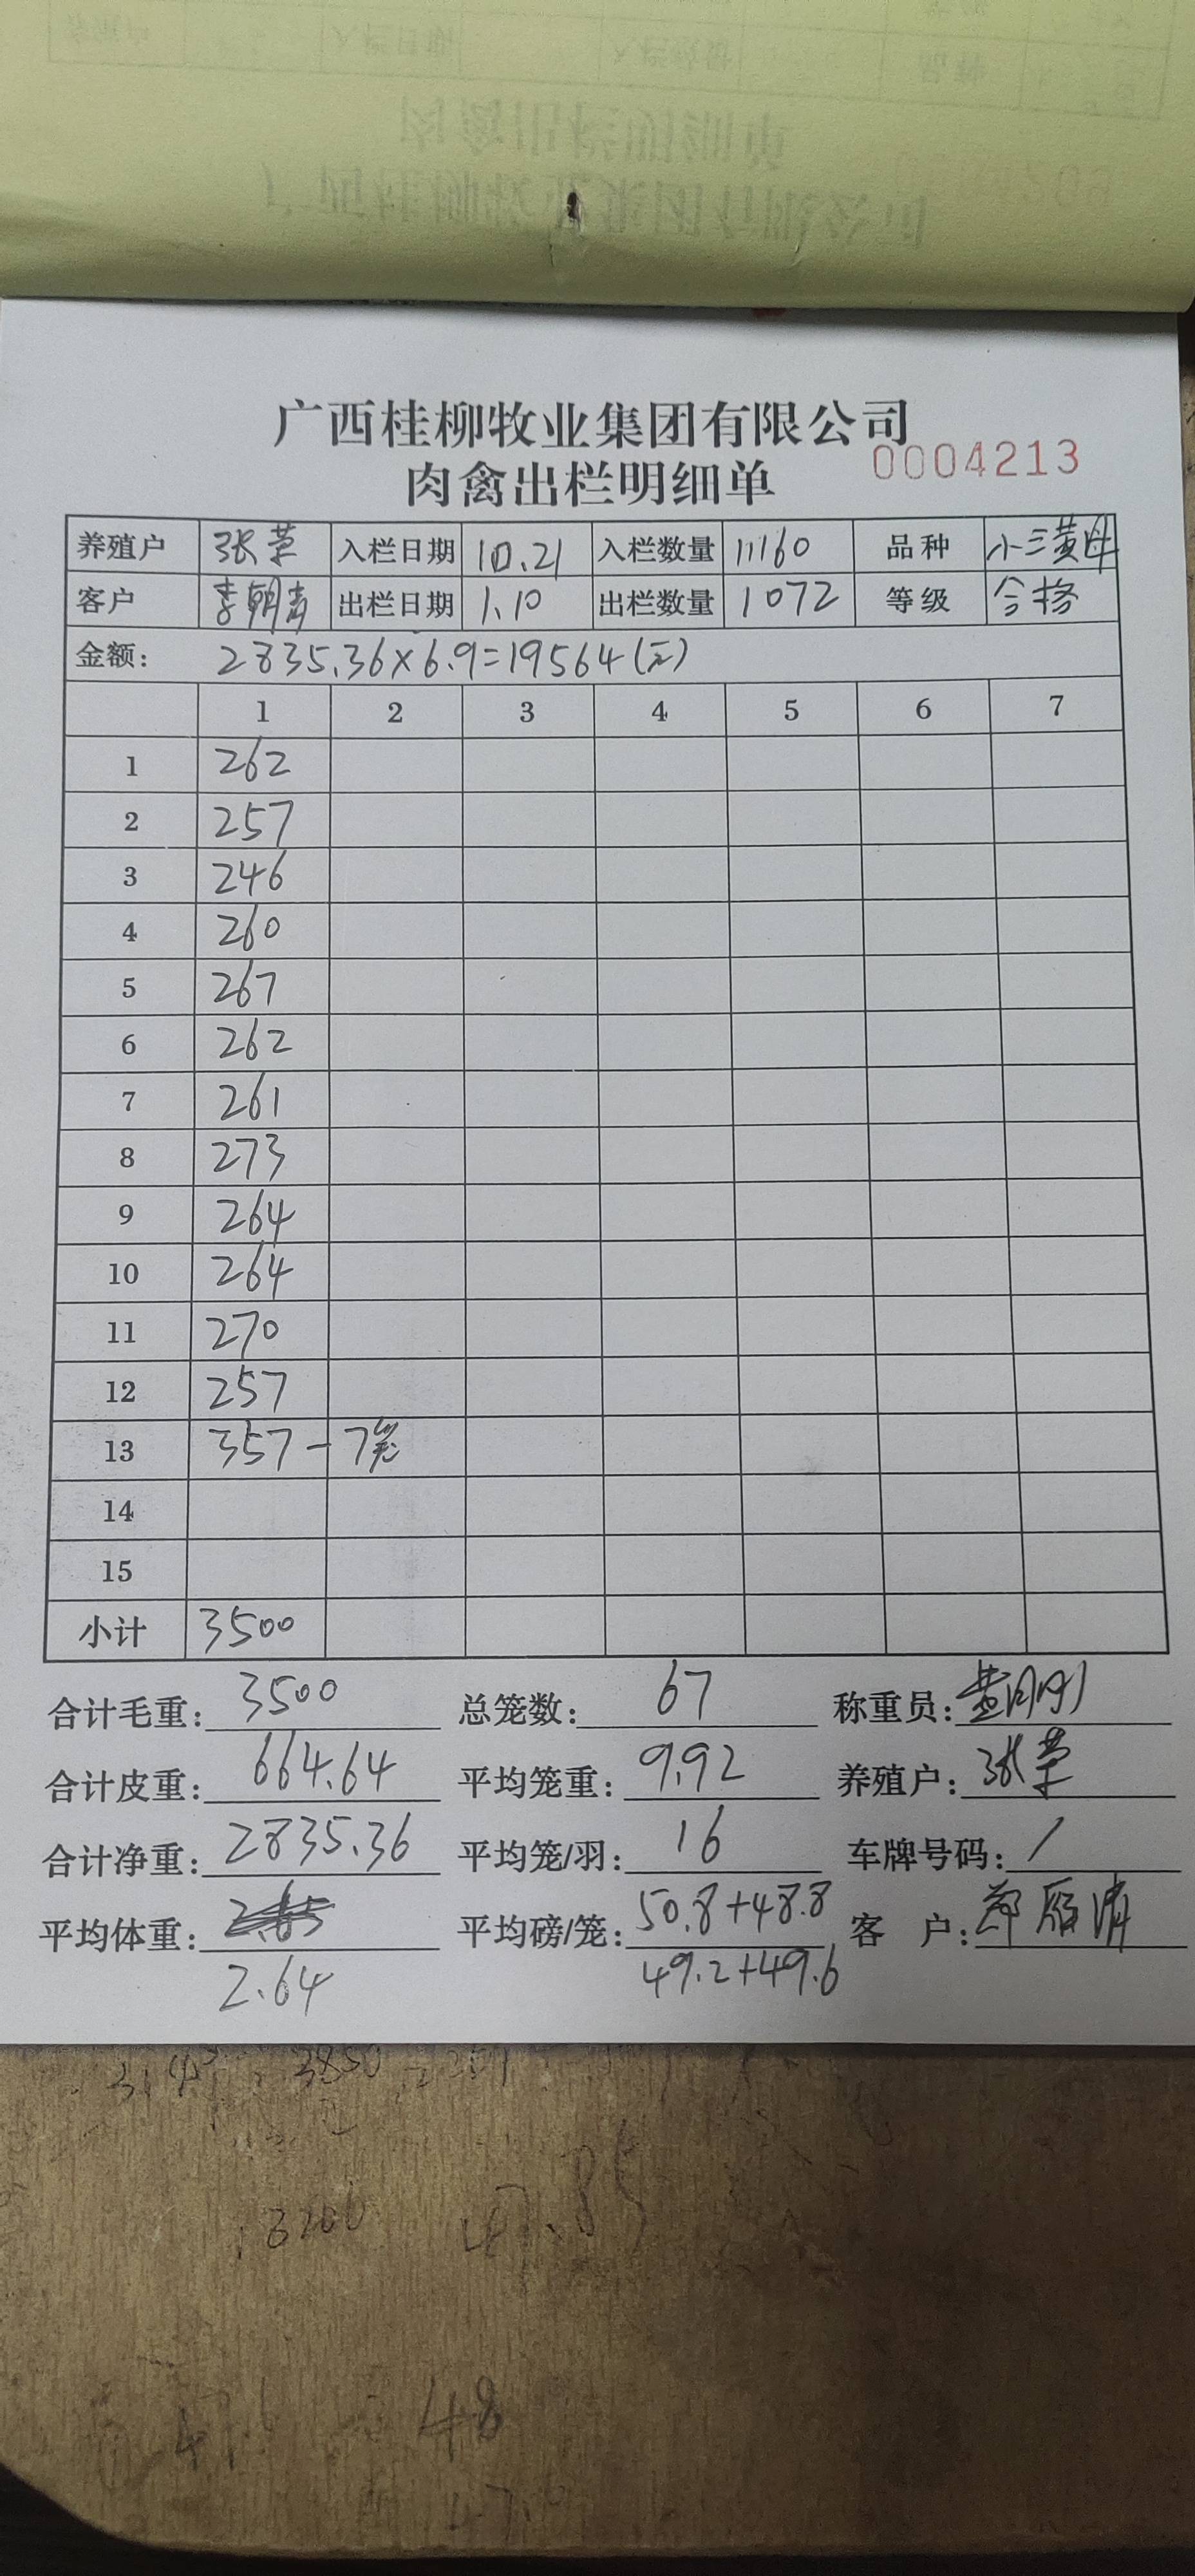 广西桂柳牧业集团有限公司
肉禽出栏明细单 0004213
养殖户 张荣 入栏日期 10.21 入栏数量 11160 品种 小三黄母
客户 李朝青 出栏日期 1.10 出栏数量 1072 等级 合格
金额: 2835.36×6.9=19564(元)
1 2 3 4 5 6 7
1 262
2 257
3 246
4 260
5 267
6 262
7 261
8 273
9 264
10 264
11 270
12 257
13 357-7笼
14
15
小计 3500
合计毛重: 3500 总笼数: 67 称重员: 黄刚刚
合计皮重: 664.64 平均笼重: 9.92 养殖户: 张荣
合计净重: 2835.36 平均笼/羽: 16 车牌号码: /
平均体重: 2.64 平均磅/笼: 50.8+48.8 客 户:
49.2+49.6
48